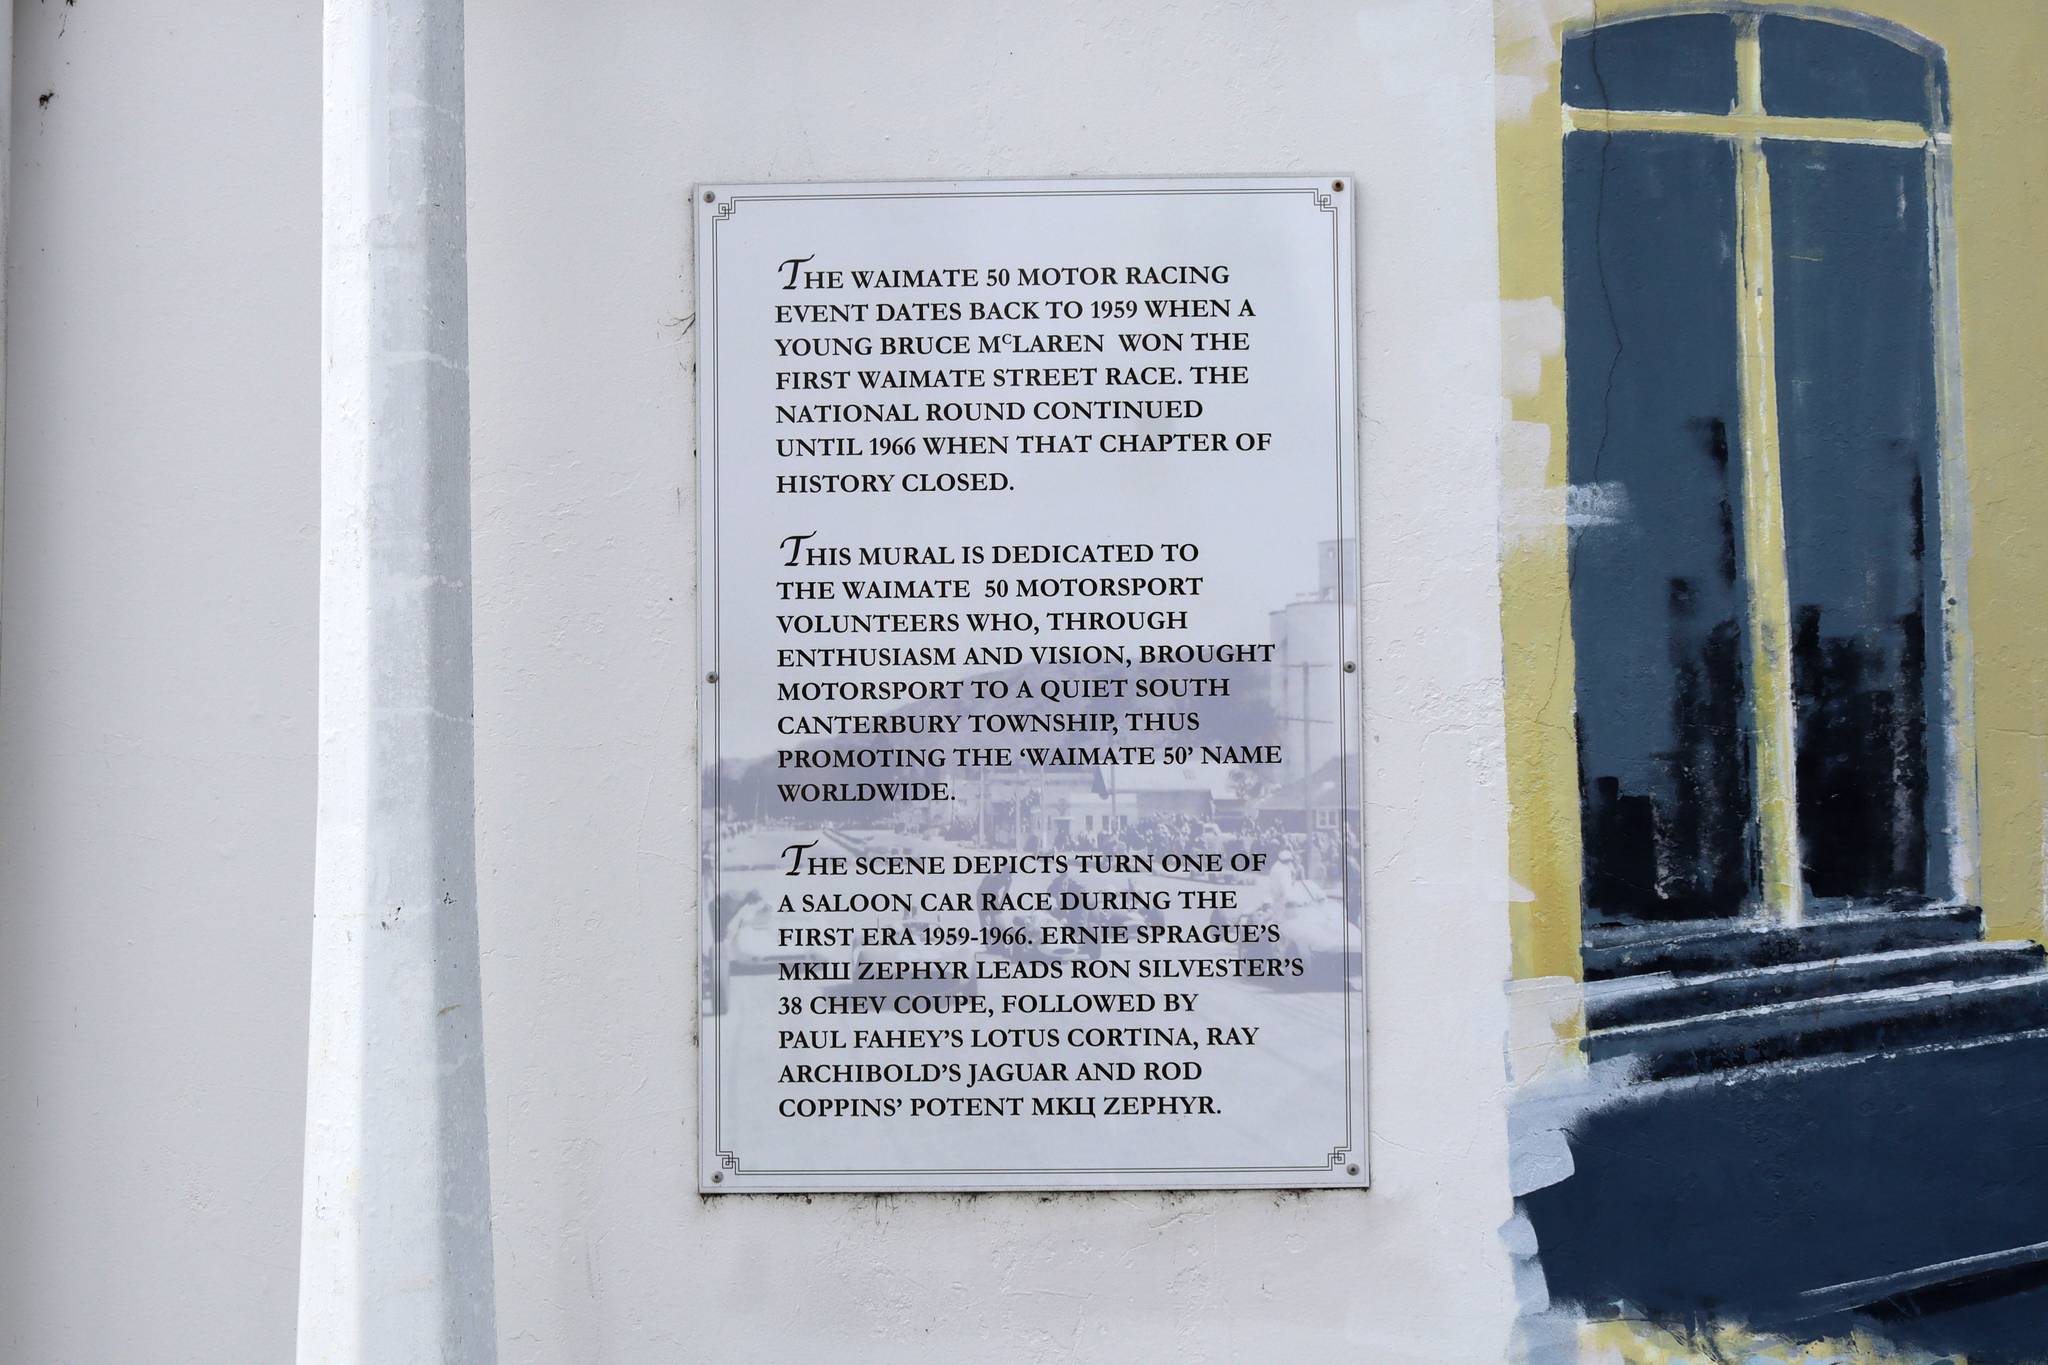 THE WAIMATE 50 MOTOR RACING
EVENT DATES BACK TO 1959 WHEN A
YOUNG BRUCE MᶜLAREN WON THE
FIRST WAIMATE STREET RACE. THE
NATIONAL ROUND CONTINUED
UNTIL 1966 WHEN THAT CHAPTER OF
HISTORY CLOSED.
THIS MURAL IS DEDICATED TO
THE WAIMATE 50 MOTORSPORT
VOLUNTEERS WHO, THROUGH
ENTHUSIASM AND VISION, BROUGHT
MOTORSPORT TO A QUIET SOUTH
CANTERBURY TOWNSHIP, THUS
PROMOTING THE ‘WAIMATE 50’ NAME
WORLDWIDE.
THE SCENE DEPICTS TURN ONE OF
A SALOON CAR RACE DURING THE
FIRST ERA 1959-1966. ERNIE SPRAGUE’S
MKШ ZEPHYR LEADS RON SILVESTER’S
38 CHEV COUPE, FOLLOWED BY
PAUL FAHEY’S LOTUS CORTINA, RAY
ARCHIBOLD’S JAGUAR AND ROD
COPPINS’ POTENT MKЦ ZEPHYR.